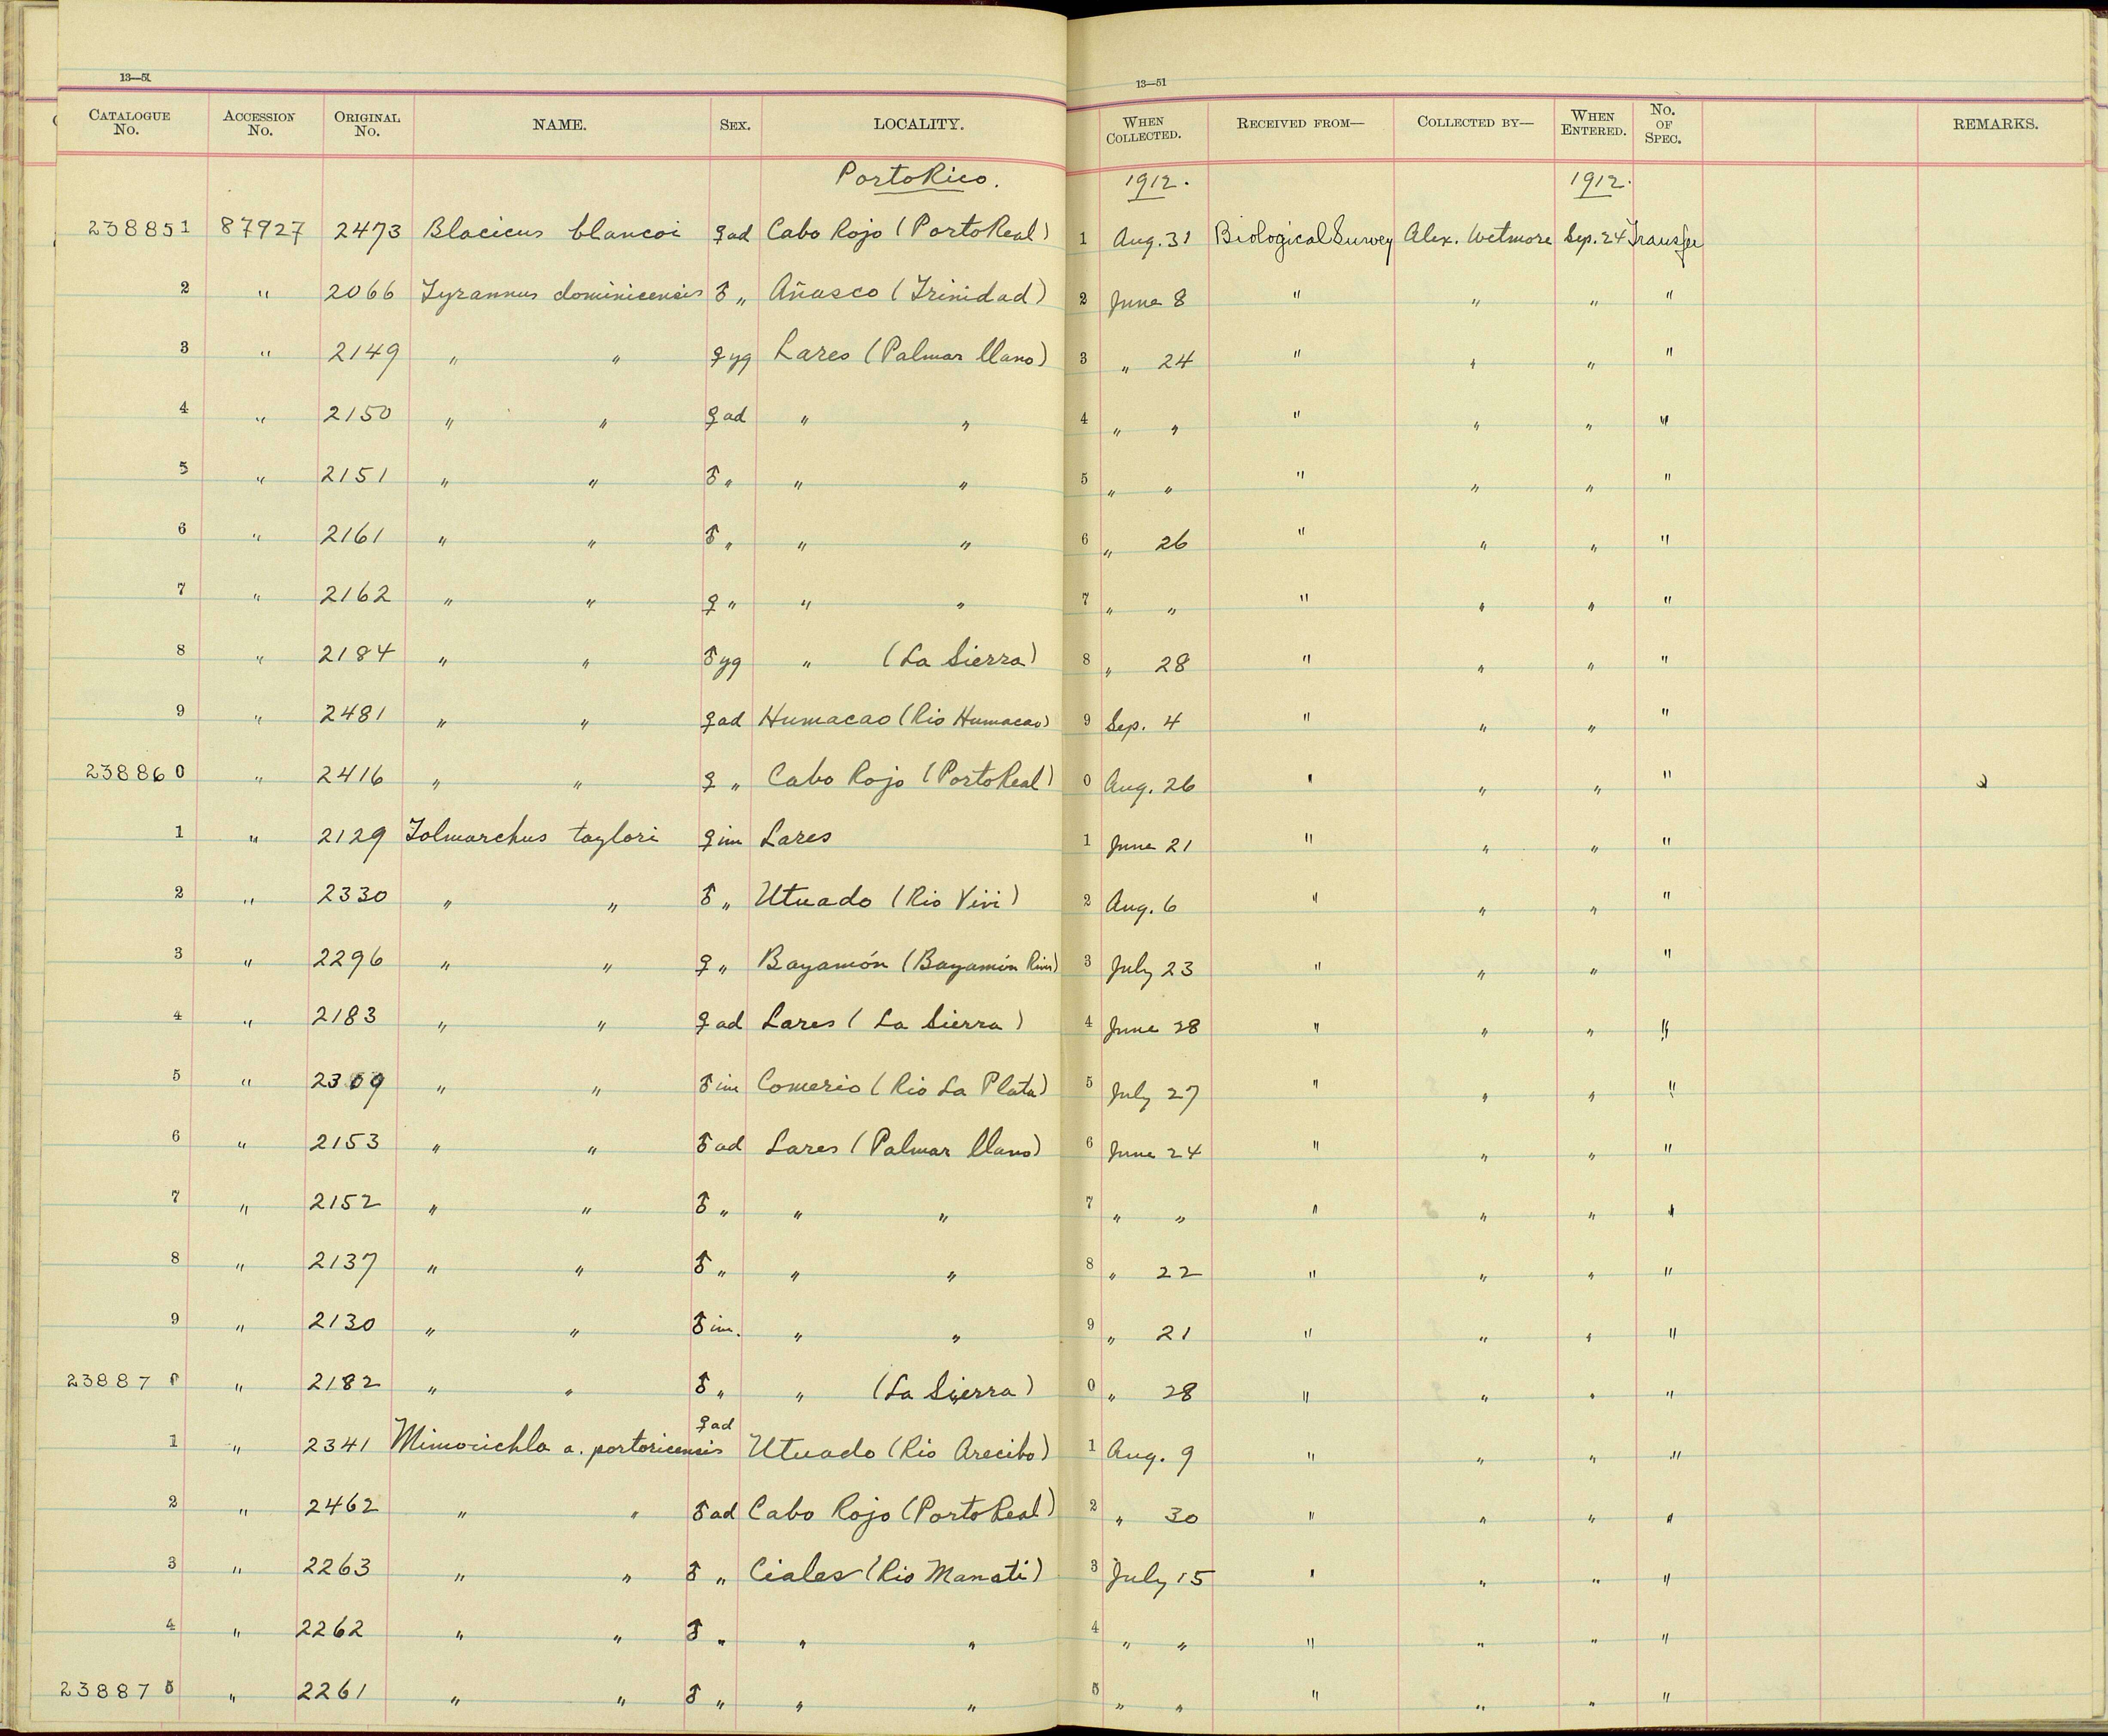 13—51 13—51
CATALOGUE No. ACCESSION No. ORIGINAL No. NAME. SEX. LOCALITY. WHEN COLLECTED. RECEIVED FROM— COLLECTED BY— WHEN ENTERED. No. OF SPEC. REMARKS.
Porto Rico. 1912. 1912.
238851 87927 2473 Blacicus blancoi ♀ad Cabo Rojo (Porto Real) 1 Aug. 31 Biological Survey Alex. Wetmore Sep. 24 Transfer
2 " 2066 Tyrannus dominicensis ♂ " Añasco (Trinidad) 2 June 8 " " " "
3 " 2149 " " ♀yg Lares (Palmar llano) 3 " 24 " " " "
4 " 2150 " " ♀ad " " 4 " " " " " "
5 " 2151 " " ♂ " " " 5 " " " " " "
6 " 2161 " " ♂ " " " 6 " 26 " " " "
7 " 2162 " " ♀ " " " 7 " " " " " "
8 " 2184 " " ♂yg " (La Sierra) 8 " 28 " " " "
9 " 2481 " " ♀ad Humacao (Rio Humacao) 9 Sep. 4 " " " "
238860 " 2416 " " ♀ " Cabo Rojo (Porto Real) 0 Aug. 26 " " " "
1 " 2129 Tolmarchus taylori ♀im Lares 1 June 21 " " " "
2 " 2330 " " ♂ " Utuado (Rio Vivi) 2 Aug. 6 " " " "
3 " 2296 " " ♀ " Bayamón (Bayamón River) 3 July 23 " " " "
4 " 2183 " " ♀ad Lares (La Sierra) 4 June 28 " " " "
5 " 2309 " " ♂im Comerio (Rio La Plata) 5 July 27 " " " "
6 " 2153 " " ♂ad Lares (Palmar llano) 6 June 24 " " " "
7 " 2152 " " ♂ " " " 7 " " " " " "
8 " 2137 " " ♂ " " " 8 " 22 " " " "
9 " 2130 " " ♂im. " " 9 " 21 " " " "
238870 " 2182 " " ♂ " " (La Sierra) 0 " 28 " " " "
1 " 2341 Mimocichla a. portoricensis ♀ad Utuado (Rio Arecibo) 1 Aug. 9 " " " "
2 " 2462 " " ♂ad Cabo Rojo (Porto Real) 2 " 30 " " " "
3 " 2263 " " ♂ " Ciales (Rio Manati) 3 July 15 " " " "
4 " 2262 " " ♂ " " " 4 " " " " " "
238875 " 2261 " " ♂ " " " 5 " " " " " "